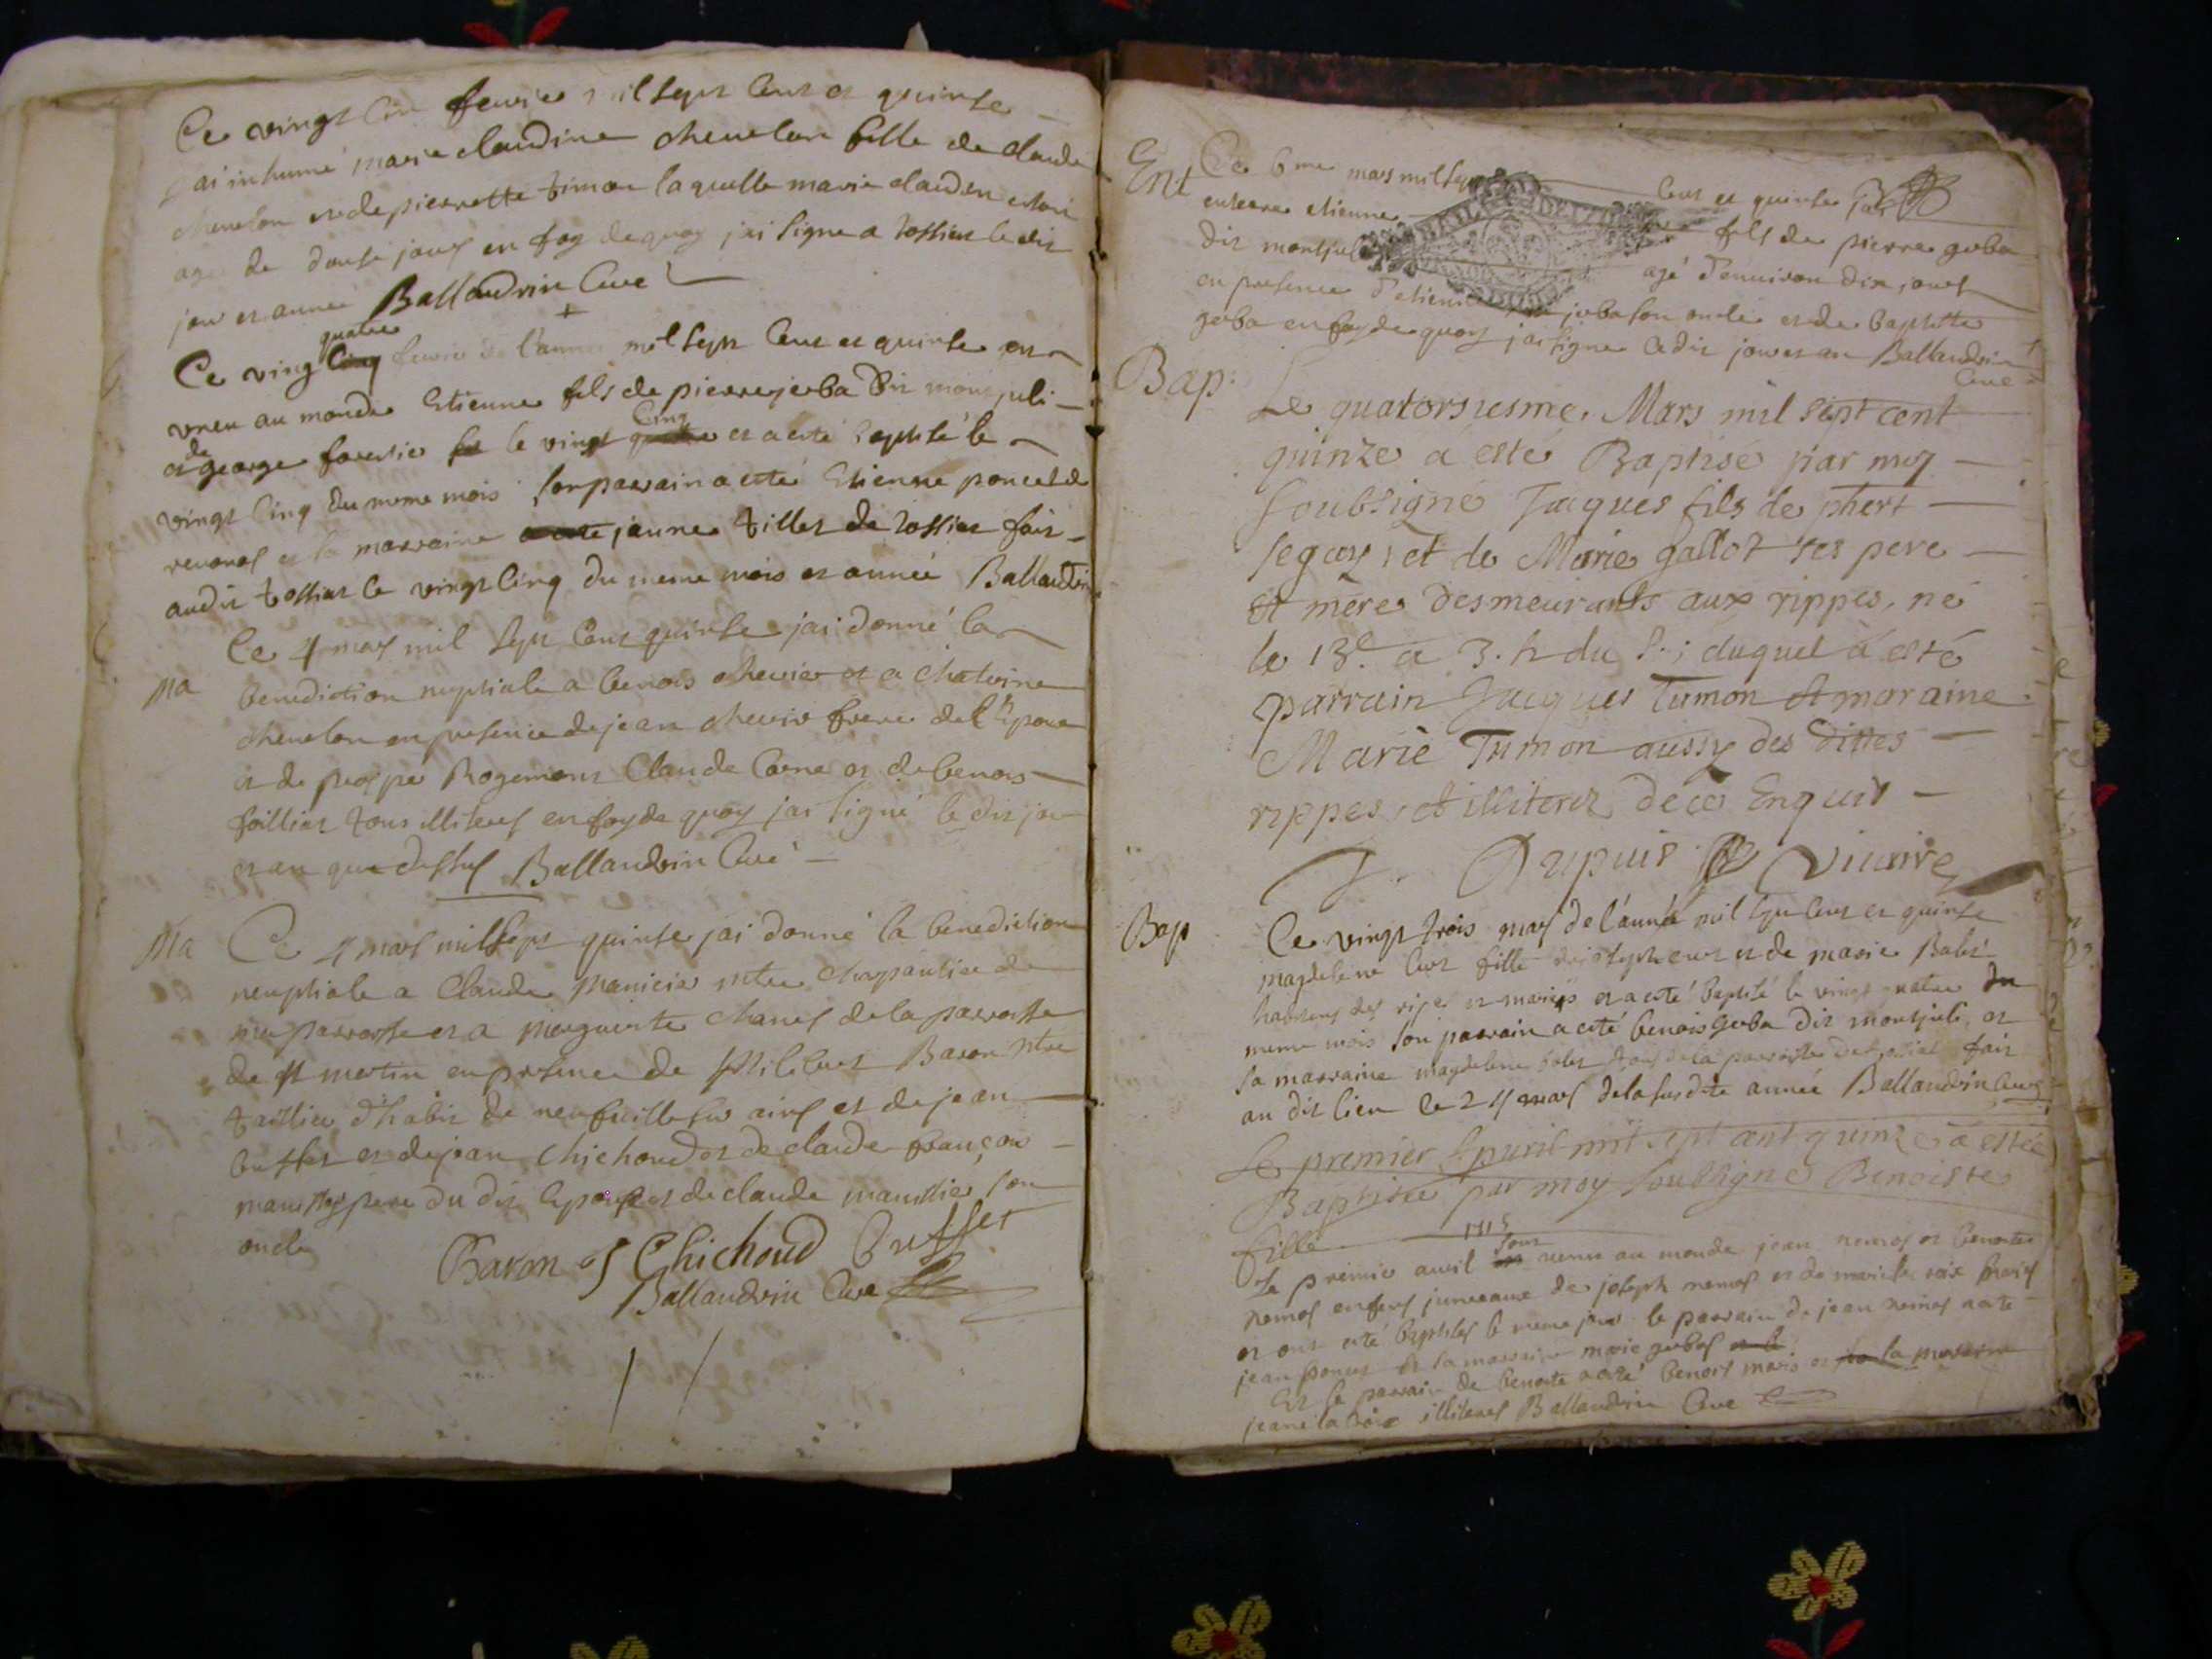 Ce vingt cin feurier mil sept cens et quinse
j'ai inhumé marie claudine cheuelon fille de claude
cheuelon et de pierrette timon laquelle marie claudin estoit
agé de douse jours en foy de quoy j'ai signe a tossiat le dit
jour et année Ballandrin Curé
quatre
Ce ving cinq feurier de l'anne mil sept cens et quinse est
venu au monde Etienne fils de pierre joba dit mont juli
Cinq
et de george forestier le vingt quatre et a esté baptisé le
vingt cinq du meme mois son parrain a esté Etienne poncet de
reuonas et la marraine a esté jeanne tillet de tossiat fait
audit tossiat le vingt cinq du meme mois et année Ballandrin
Ma
Ce 4 mars mil sept cens quinse j'ai donné la
benediction nuptiale a benois cheuier et a Chaterine
cheuelon en presence de jean cheuier frere de l'Epoux
et de prospe Rogemont Claude Carne et de benois
foilliet tous illiteres en foy de quoy j'ai signé le dit jour
et an que dessus Ballandrin Curé
Ma
Ce 4 mars mil sept quinse j'ai donné la benediction
neuptiale a Claude manicier mtre Charpantier de
ma parroisse et a marguerite Chanel de la parroisse
de st martin en presence de philibert Baron mtre
taillieu d'habit de neufuille sur ains et de jean
buffet et de jean Chichoud et de claude françois
manissier pere du dit Epoux et de claude manissier son
oncle
Baron J Chichoud Buffet
Ballandrin Curé
Ent
Ce 6me mars mil sept cens et quinse j'ai
enterre etienne fils de pierre goba
dit montjuli agé d'enuiron dix jours
en presence d'etienne joba son oncle et de baptiste
goba en foy de quoy j'ai signe ledit jour et an Ballandrin
Curé
Bap:
Le quatorsiesme, Mars mil sept cent
quinze a esté Baptisé par moy
soubsigné Jaques fils de phert
seguy, et de Marie gallot ses pere
et mere desmeurants aux rippes, né
le 13e. a 3. h du S.; duquel a esté
parrain Jacques Tumon et maraine
Marie Tumon aussy des dittes
rippes, et illiterez de ce Enquis
J. Dupuis Viccaire
Bap
Ce vingt trois mars de l'année mil sept cens et quinse
magdeleine fille et de marie Balet
habitens des ripe et a esté baptisé le vingt quatre du
meme mois son parrain a esté benois Goba dit montjuli, et
sa marraine magdeleine de la parroisse de tossiat fait
au dit lieu le 24 mars de la susdite année Ballandrin Curé
Le premier Apuril mil sept cent quinze a estée
Baptisée par moy soubsigné Benoiste
fille
1715
sont
le premier auril est venus au monde jean nemos et benoite
nemos enfens jumeaux de joseph nemos et de marie
et ont esté baptisés le meme jour le parrain de jean nemos a esté
jean poncet et la marraine marie gobas et le
Et le parrain de benoite a esté benois mais et la marraine
jeane la Croix illiteres Ballandrin Curé